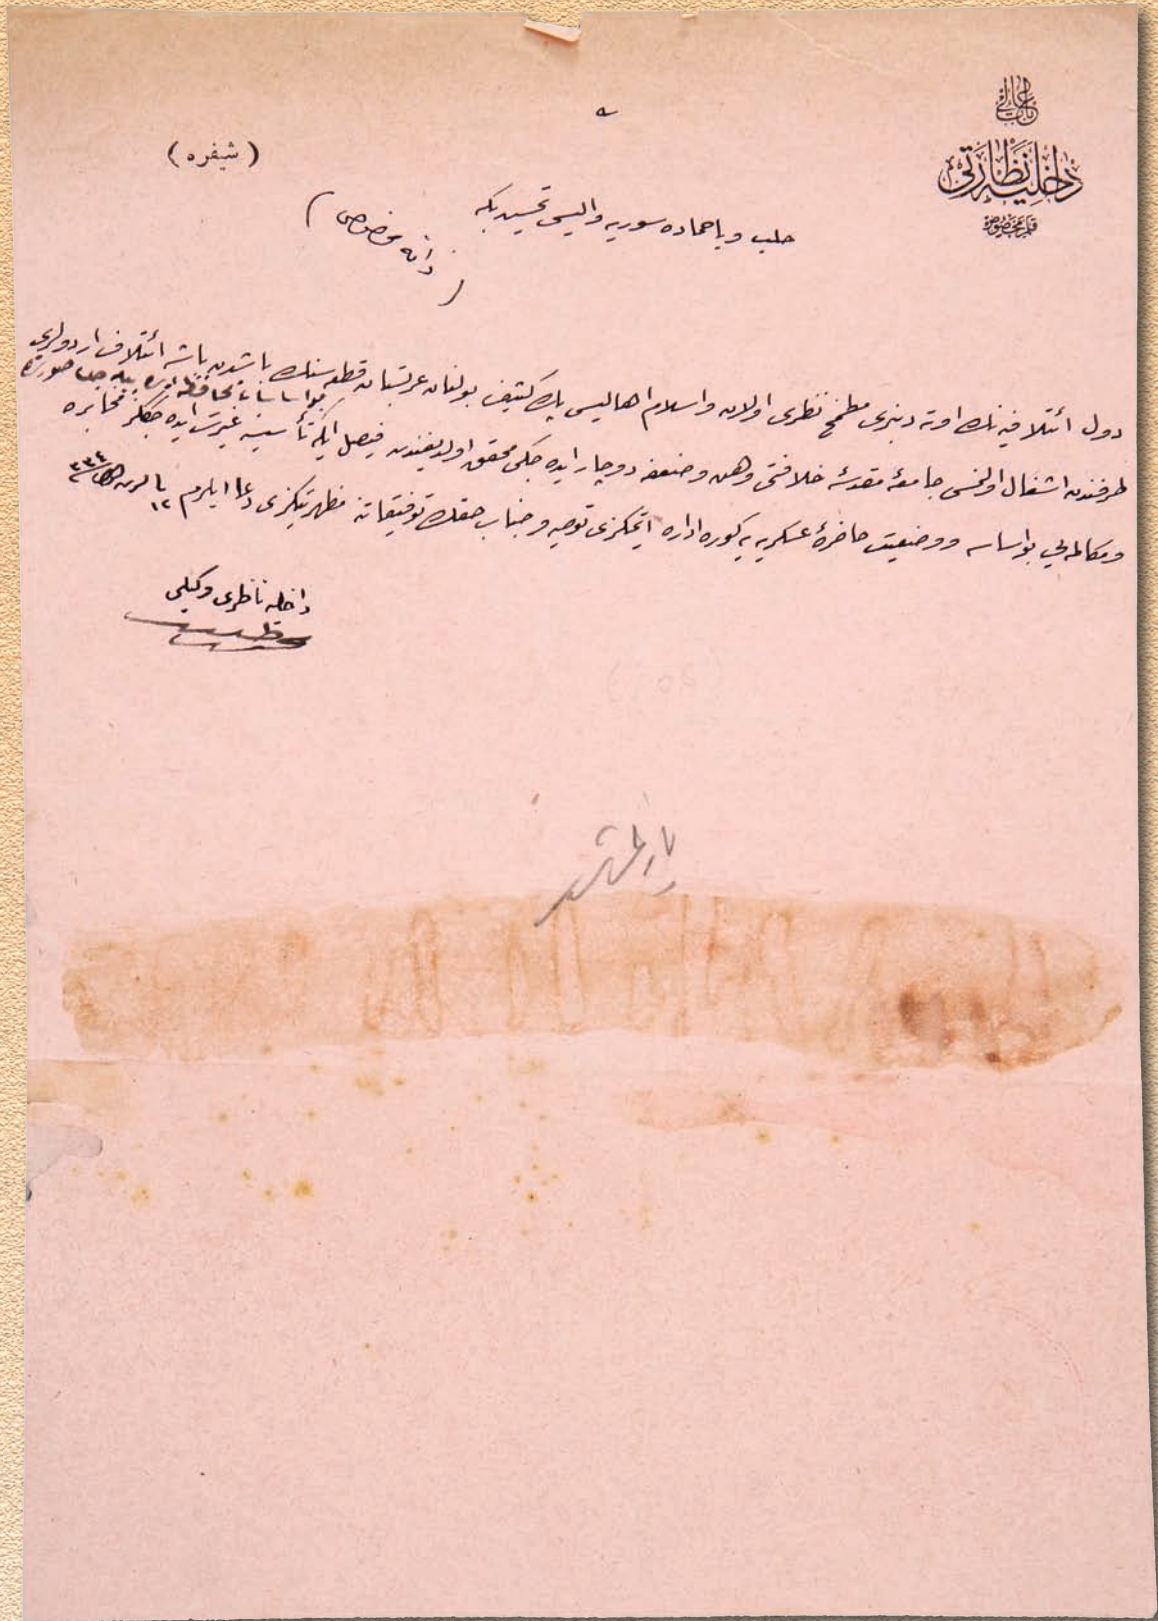 باب عالی
داخلیه نظارتی
قلم مخصوص
(شیفره)
حلب ویا حماده سوریه والیسی تحسین بكه
(ذاته مخصوصی)
دول ائتلافیه نك اوته دنبری مطمح نظری اولان واسلام اهالیسی پك كثیف بولنان عربستان قطعه سنك باشدن باشه ائتلاف اردولری
طرفندن اشغال اولنمسی جامعهٔ مقدسهٔ خلافتی وهن وضعفه دوچار ایده جكی محقق اولدیغندن فیصل ایله تأسیسنه غیرت ایده جككز مخابره
بو اساساتی محافظه
ومكالمه یی بو اساسه ووضعیت حاضرهٔ عسكریه یه كوره اداره ایتمكزی توصیه وجناب حقك توفیقاته مظهریتكزی دعا ایلرم ١٢
٣٣٤
داخلیه ناظری وكیلی